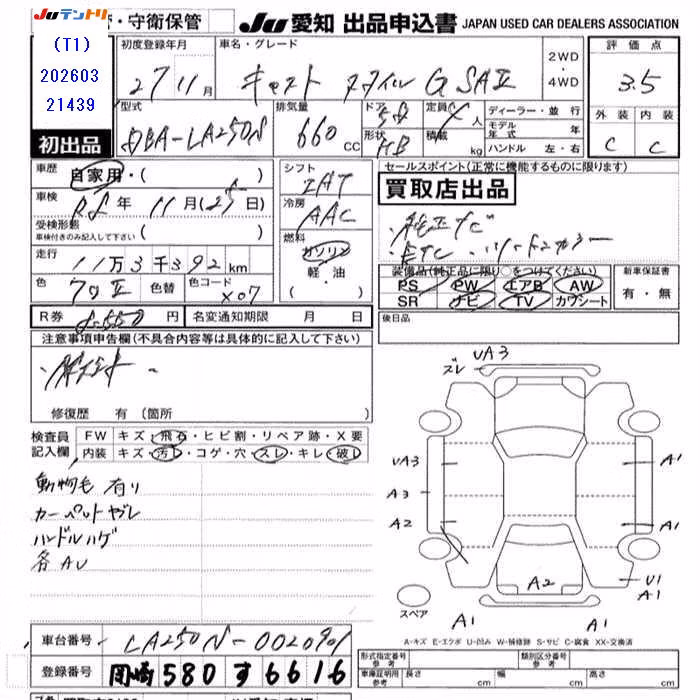 Juテントリ
・守衛保管
Ju 愛知 出品申込書 JAPAN USED CAR DEALERS ASSOCIATION
(T1)
202603
21439
初出品
初度登録年月
27 11月
車名・グレード
キャスト スタイル G SAⅡ
2WD
・
4WD
評価点
3.5
外装 内装
C C
型式
DBA-LA250S
排気量
660 CC
ドア
形状
5D
HB
定員
4人
積載
kg
ディーラー・並行
モデル年式 年
ハンドル 左・右
車歴
自家用・( )
車検
R8年 11月(25日)
受検形態
車検付きのみ記入して下さい ( )
走行
11万3千392km
色
クロⅡ
色替
色コード
X07
R券
8,550円
名変通知期限 月 日
シフト
IAT
冷房
AAC
燃料
ガソリン
軽油
( ・ )
セールスポイント(正常に機能するものに限ります)
買取店出品
・純正TV
・ETC
装備品(純正品に限り○をつけてください)
PS PW エアB AW
SR ナビ TV カワシート
新車保証書
有・無
後日品
注意事項申告欄(不具合内容等は具体的に記入して下さい)
修復歴 有(箇所 )
検査員
記入欄
FW キズ・飛石・ヒビ割・リペア跡・X要
内装 キズ・汚レ・コゲ・穴・スレ・キレ・破レ
動物毛 有り
カーペットヤレ
ハンドルハゲ
各AU
UA3
ズレ
UA3
A3
A2
A1
A1
U1
A1
A2
A1
A1
スペア
A-キズ E-エクボ U-凹み W-補修跡 S-サビ C-腐食 XX-交換済
車台番号
LA250S-0020901
登録番号
岡崎 580 す 6616
形式指定番号
参考
類別区分番号
参考
車庫証明用
参考
長さ cm 幅 cm 高さ cm